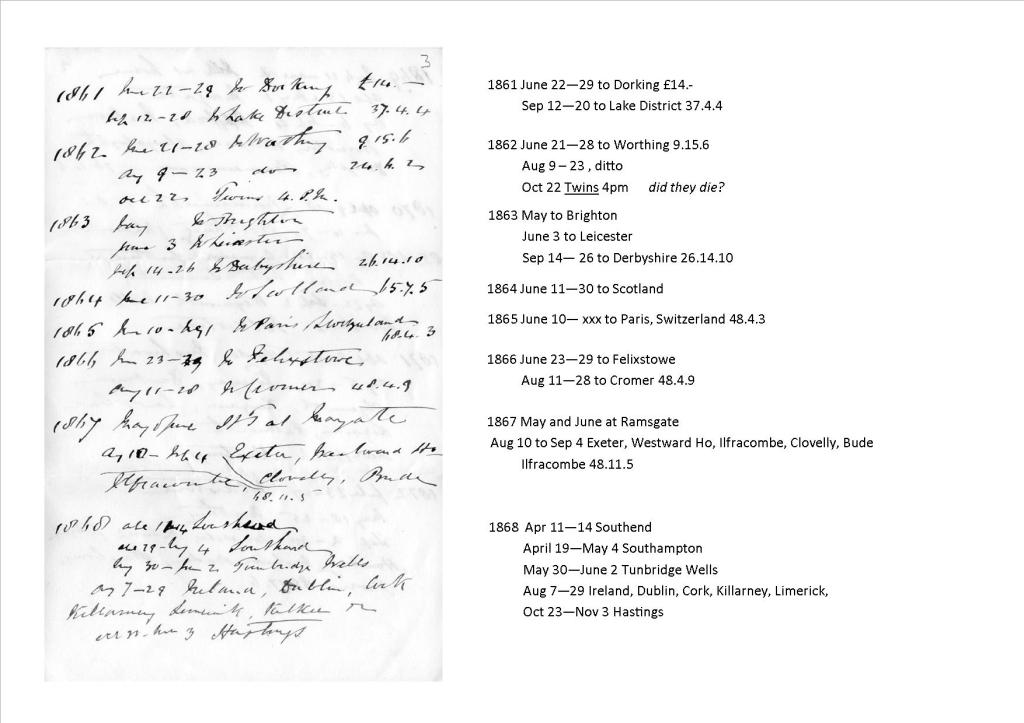 3
1861 June 22-29 to Dorking £14.-
Sep 12-20 to Lake District 37.4.4
1862 June 21-28 to Worthing 9.15.6
Aug 9-23 do 24.4.2
Oct 22 Twins 4 P.M.
1863 May to Brighton
June 3 to Leicester
Sep 14-26 to Derbyshire 26.14.10
1864 June 11-30 to Scotland 15.7.5
1865 June 10- to Paris Switzerland
68.4.3
1866 June 23-29 to Felixstowe
Aug 11-28 to Cromer 48.4.9
1867 May & June at
Aug 10- Sep 4 Exeter, Westward Ho
Ilfracombe, Clovelly, Bude
48.11.5
1868 Southend
May 4 Southend
May 30-June 2 Tunbridge Wells
Aug 7-29 Ireland, Dublin, Cork
Killarney Limerick, Kilkee
3 Hastings
1861 June 22—29 to Dorking £14.-
Sep 12—20 to Lake District 37.4.4
1862 June 21—28 to Worthing 9.15.6
Aug 9 – 23 , ditto
Oct 22 Twins 4pm did they die?
1863 May to Brighton
June 3 to Leicester
Sep 14— 26 to Derbyshire 26.14.10
1864 June 11—30 to Scotland
1865 June 10— xxx to Paris, Switzerland 48.4.3
1866 June 23—29 to Felixstowe
Aug 11—28 to Cromer 48.4.9
1867 May and June at Ramsgate
Aug 10 to Sep 4 Exeter, Westward Ho, Ilfracombe, Clovelly, Bude
Ilfracombe 48.11.5
1868 Apr 11—14 Southend
April 19—May 4 Southampton
May 30—June 2 Tunbridge Wells
Aug 7—29 Ireland, Dublin, Cork, Killarney, Limerick,
Oct 23—Nov 3 Hastings